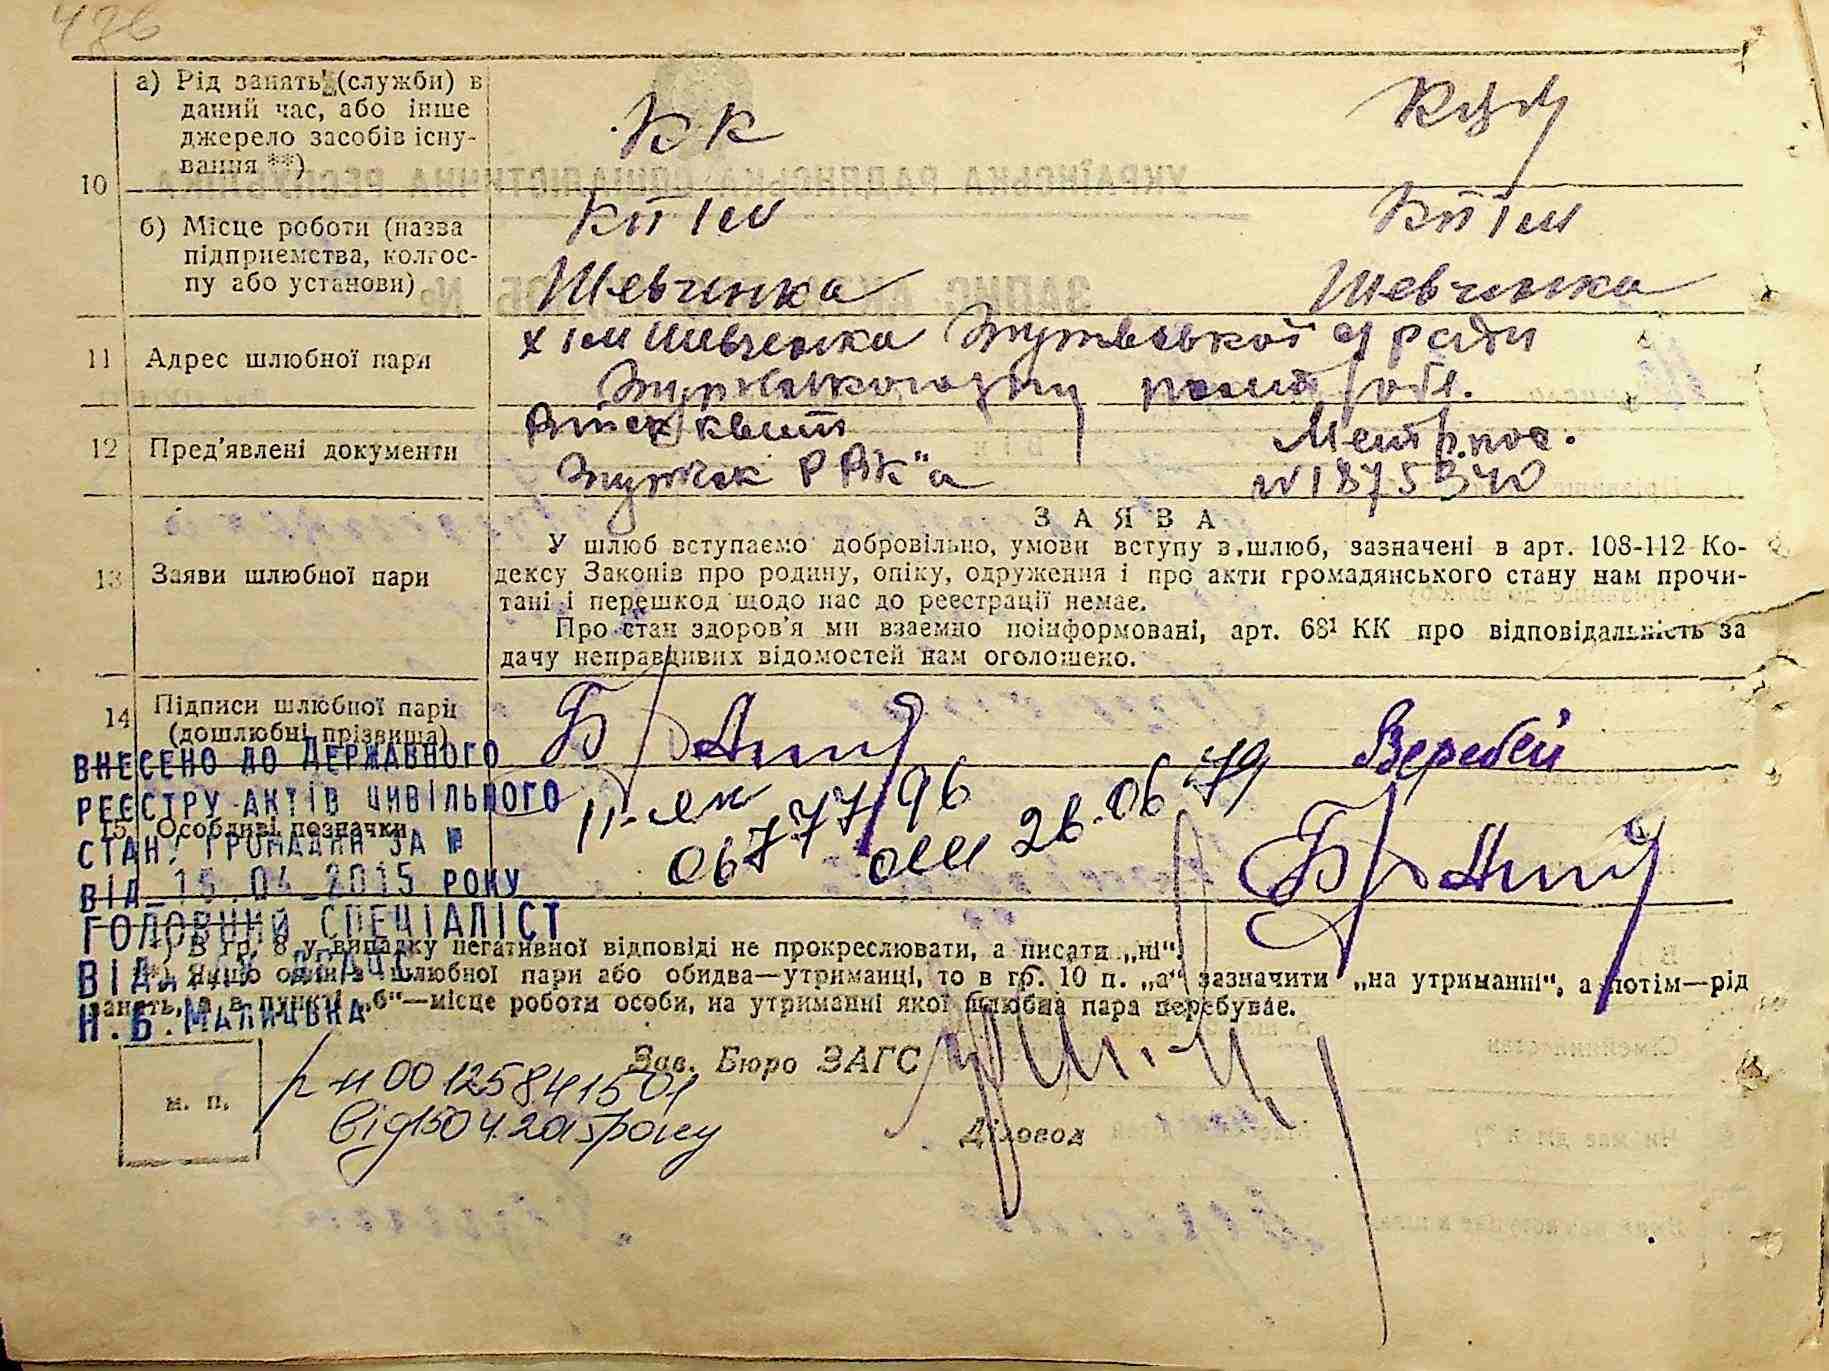 10
а) Рід занять (служби) в
даний час, або інше
джерело засобів існу-
вання **)
КК
б) Місце роботи (назва
підприємства, колгос-
пу або установи)
КП ім
КП ім
Шевченка
Шевченка
11 Адрес шлюбної пари
х ім Шевченка
ради
обл.
12 Пред'явлені документи
квит
Метр. пос.
РВК"а
N 1875340
13 Заяви шлюбної пари
ЗАЯВА
У шлюб вступаємо добровільно, умови вступу в шлюб, зазначені в арт. 108-112 Ко-
дексу Законів про родину, опіку, одруження і про акти громадянського стану нам прочи-
тані і перешкод щодо нас до реєстрації немає.
Про стан здоров'я ми взаємно поінформовані, арт. 68¹ КК про відповідальність за
дачу неправдивих відомостей нам оголошено.
14 Підписи шлюбної пари
(дошлюбні прізвища)
Веребей
15 Особливі позначки
II-ЯК
067777/96 від 26.06.79
ВНЕСЕНО ДО ДЕРЖАВНОГО
РЕЄСТРУ АКТІВ ЦИВІЛЬНОГО
СТАНУ ГРОМАДЯН ЗА №
ВІД 15.04.2015 РОКУ
ГОЛОВНИЙ СПЕЦІАЛІСТ
ВІДДІЛУ ДРАЦС
Н.Б.МАЛИЦЬКА
*) В гр. 8 у випадку негативної відповіді не прокреслювати, а писати „ні“.
**) Якщо один з шлюбної пари або обидва—утриманці, то в гр. 10 п. „а“ зазначити „на утриманні“, а потім—рід
занять, а в пункті „б“—місце роботи особи, на утриманні якої шлюбна пара перебуває.
Зав. Бюро ЗАГС
м. п.
р н 00125841501
від 15 04.2015 року
Діловод